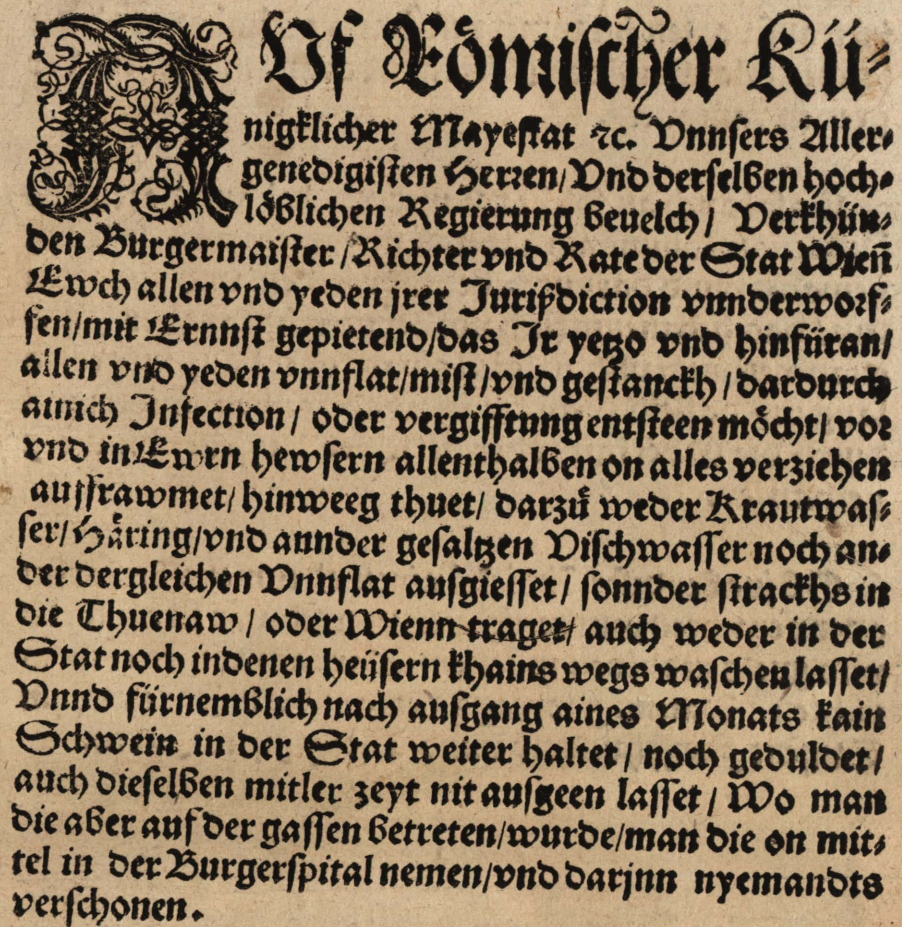 AUf Römischer Kü⸗
nigklicher Mayestat ⁊c. Vnnsers Aller⸗
genedigisten Herren/ Vnd derselben hoch⸗
löblichen Regierung beuelch/ Verkhün⸗
den Burgermaister/ Richter vnd Rate der Stat Wien̄
Ewch allen vnd yeden jrer Jurißdiction vnnderworf⸗
fen/ mit Ernnst gepietend/ das Ir yetzo vnd hinfüran/
allen vnd yeden vnnflat/ mist/ vnd gestanckh/ dardurch
ainich Infection/ oder vergifftung entsteen möcht/ vor
vnd in Ewrn hewsern allenthalben on alles verziehen
auffrawmet/ hinweeg thuet/ darzů weder Krautwas⸗
ser/ Häring/ vnd annder gesaltzen Vischwasser noch an⸗
der dergleichen Vnnflat ausgiesset/ sonnder strackhs in
die Thuenaw/ oder Wienn traget/ auch weder in der
Stat noch in denen heüsern khains wegs waschen lasset/
Vnnd fürnemblich nach ausgang aines Monats kain
Schwein in der Stat weiter haltet/ noch geduldet/
auch dieselben mitler zeyt nit ausgeen lasset/ Wo man
die aber auf der gassen betreten/ wurde/ man die on mit⸗
tel in der Burgerspital nemen/ vnd darjnn nyemandts
verschonen.